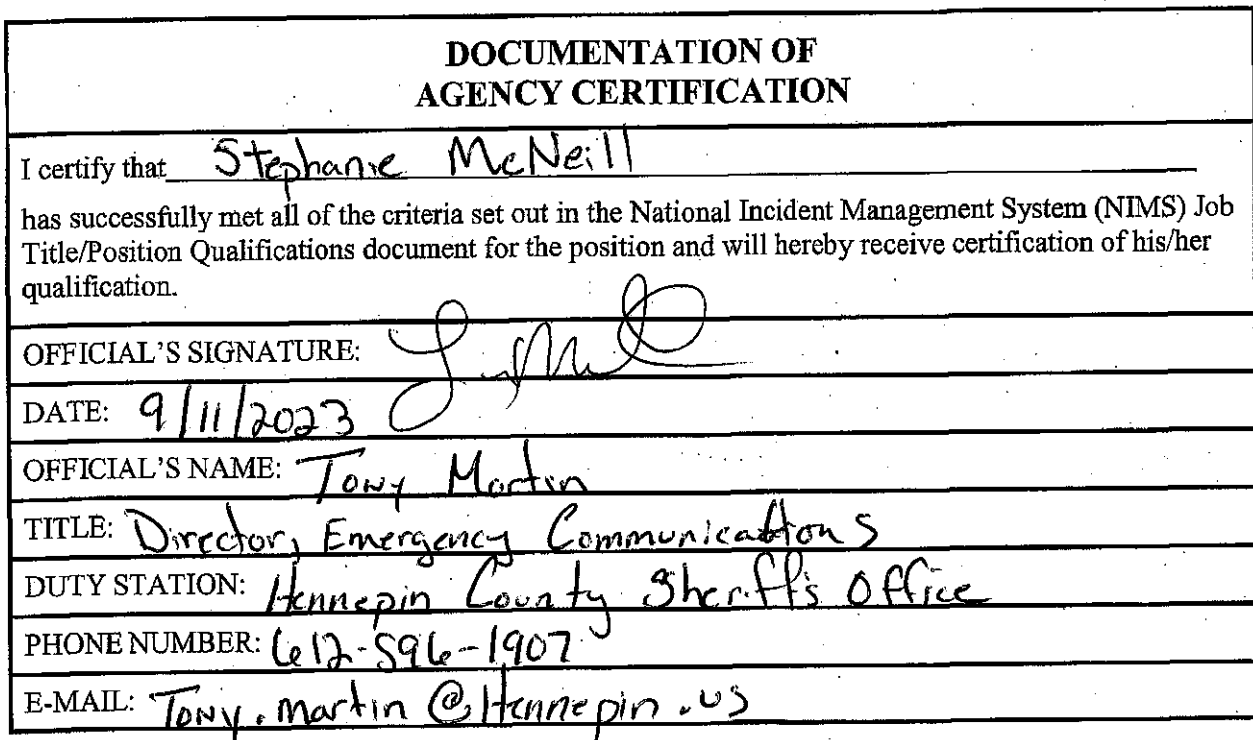 DOCUMENTATION OF
AGENCY CERTIFICATION
I certify that Stephanie McNeill
has successfully met all of the criteria set out in the National Incident Management System (NIMS) Job
Title/Position Qualifications document for the position and will hereby receive certification of his/her
qualification.
OFFICIAL'S SIGNATURE:
DATE: 9/11/2023
OFFICIAL'S NAME: Tony Martin
TITLE: Director, Emergency Communications
DUTY STATION: Hennepin County Sheriff's Office
PHONE NUMBER: 612-596-1907
E-MAIL: Tony.martin@Hennepin.us